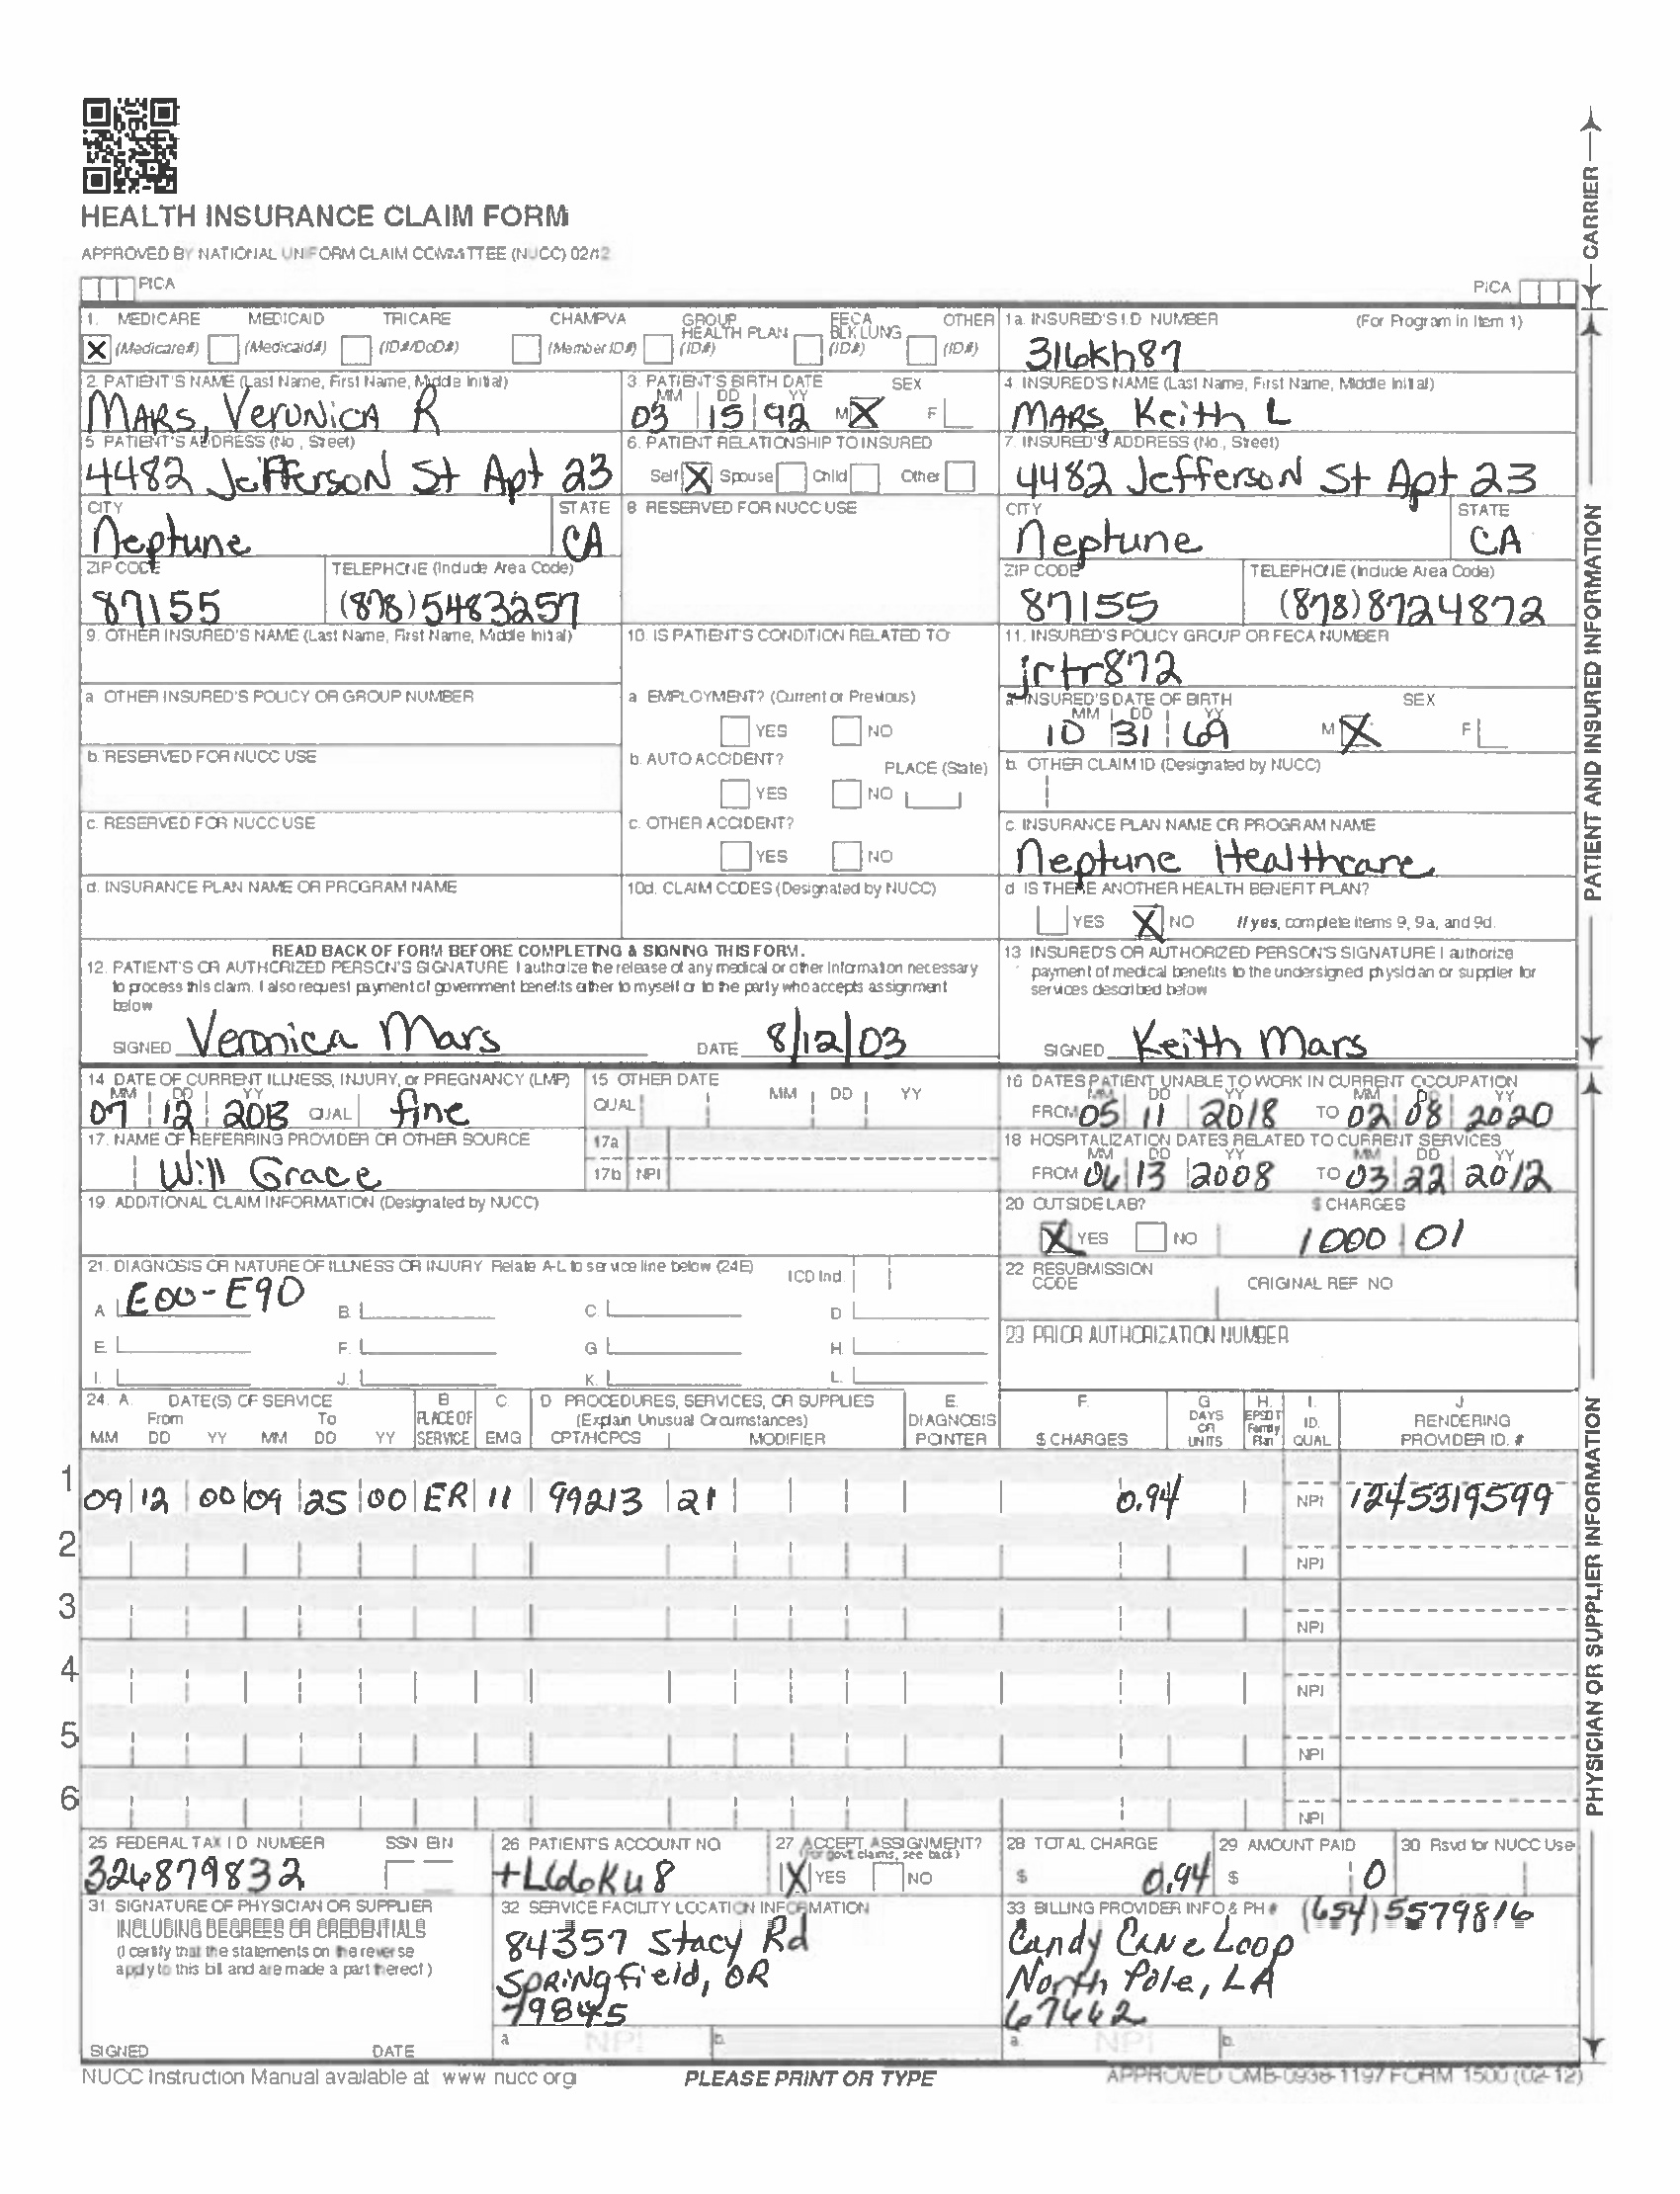 HEALTH INSURANCE CLAIM FORM
APPROVED BY NATIONAL UNIFORM CLAIM COMMITTEE (NUCC) 02/12
PICA
PICA
CARRIER
1. MEDICARE MEDICAID TRICARE CHAMPVA GROUP HEALTH PLAN FECA BLK LUNG OTHER
X (Medicare#) (Medicaid#) (ID#/DoD#) (Member ID#) (ID#) (ID#) (ID#)
1a. INSURED'S I.D. NUMBER (For Program in Item 1)
316kh87
2. PATIENT'S NAME (Last Name, First Name, Middle Initial)
MARS, VeroNicA R
3. PATIENT'S BIRTH DATE SEX
MM DD YY
03 15 92 M X F
4. INSURED'S NAME (Last Name, First Name, Middle Initial)
MARS, Keith L
5. PATIENT'S ADDRESS (No., Street)
4482 JeffersoN St Apt 23
6. PATIENT RELATIONSHIP TO INSURED
Self X Spouse Child Other
7. INSURED'S ADDRESS (No., Street)
4482 JeffersoN St Apt 23
CITY STATE
Neptune CA
8. RESERVED FOR NUCC USE
CITY STATE
Neptune CA
ZIP CODE TELEPHONE (Include Area Code)
87155 (878)5483257
ZIP CODE TELEPHONE (Include Area Code)
87155 (878)8724872
9. OTHER INSURED'S NAME (Last Name, First Name, Middle Initial)
10. IS PATIENT'S CONDITION RELATED TO
11. INSURED'S POLICY GROUP OR FECA NUMBER
jrtr872
a. OTHER INSURED'S POLICY OR GROUP NUMBER
a. EMPLOYMENT? (Current or Previous)
YES NO
a. INSURED'S DATE OF BIRTH SEX
MM DD YY
10 31 69 M X F
b. RESERVED FOR NUCC USE
b. AUTO ACCIDENT? PLACE (State)
YES NO
b. OTHER CLAIM ID (Designated by NUCC)
c. RESERVED FOR NUCC USE
c. OTHER ACCIDENT?
YES NO
c. INSURANCE PLAN NAME OR PROGRAM NAME
Neptune Healthcare
d. INSURANCE PLAN NAME OR PROGRAM NAME
10d. CLAIM CODES (Designated by NUCC)
d. IS THERE ANOTHER HEALTH BENEFIT PLAN?
YES X NO If yes, complete items 9, 9a, and 9d.
PATIENT AND INSURED INFORMATION
READ BACK OF FORM BEFORE COMPLETING & SIGNING THIS FORM.
12. PATIENT'S OR AUTHORIZED PERSON'S SIGNATURE I authorize the release of any medical or other information necessary
to process this claim. I also request payment of government benefits either to myself or to the party who accepts assignment
below
SIGNED Veronica Mars DATE 8/12/03
13. INSURED'S OR AUTHORIZED PERSON'S SIGNATURE I authorize
payment of medical benefits to the undersigned physician or supplier for
services described below
SIGNED Keith Mars
14. DATE OF CURRENT ILLNESS, INJURY, or PREGNANCY (LMP)
MM DD YY
07 12 2013 QUAL fine
15. OTHER DATE
QUAL MM DD YY
16. DATES PATIENT UNABLE TO WORK IN CURRENT OCCUPATION
MM DD YY MM DD YY
FROM 05 11 2018 TO 02 08 2020
17. NAME OF REFERRING PROVIDER OR OTHER SOURCE
Will Grace
17a
17b NPI
18. HOSPITALIZATION DATES RELATED TO CURRENT SERVICES
MM DD YY MM DD YY
FROM 06 13 2008 TO 03 22 2012
19. ADDITIONAL CLAIM INFORMATION (Designated by NUCC)
20. OUTSIDE LAB? $ CHARGES
X YES NO 1000 01
21. DIAGNOSIS OR NATURE OF ILLNESS OR INJURY Relate A-L to service line below (24E) ICD Ind.
A. E00-E90 B. C. D.
E. F. G. H.
I. J. K. L.
22. RESUBMISSION CODE ORIGINAL REF. NO.
23. PRIOR AUTHORIZATION NUMBER
24. A. DATE(S) OF SERVICE B. C. D. PROCEDURES, SERVICES, OR SUPPLIES E. F. G. H. I. J.
From To PLACE OF (Explain Unusual Circumstances) DIAGNOSIS DAYS OR UNITS EPSDT Family Plan ID. RENDERING
MM DD YY MM DD YY SERVICE EMG CPT/HCPCS MODIFIER POINTER $ CHARGES QUAL PROVIDER ID. #
1 09 12 00 09 25 00 ER 11 99213 21 0.94 NPI 1245319599
2 NPI
3 NPI
4 NPI
5 NPI
6 NPI
PHYSICIAN OR SUPPLIER INFORMATION
25. FEDERAL TAX I.D. NUMBER SSN EIN
326879832
26. PATIENT'S ACCOUNT NO.
+L66Ku8
27. ACCEPT ASSIGNMENT?
(For govt. claims, see back)
X YES NO
28. TOTAL CHARGE
$ 0.94
29. AMOUNT PAID
$ 0
30. Rsvd for NUCC Use
31. SIGNATURE OF PHYSICIAN OR SUPPLIER
INCLUDING DEGREES OR CREDENTIALS
(I certify that the statements on the reverse
apply to this bill and are made a part thereof.)
SIGNED DATE
32. SERVICE FACILITY LOCATION INFORMATION
84357 Stacy Rd
SpRiNgfield, OR
79845
a. NPI b.
33. BILLING PROVIDER INFO & PH # (654)5579816
Candy Cane Loop
North Pole, LA
67662
a. NPI b.
NUCC Instruction Manual available at: www.nucc.org
PLEASE PRINT OR TYPE
APPROVED OMB-0938-1197 FORM 1500 (02-12)